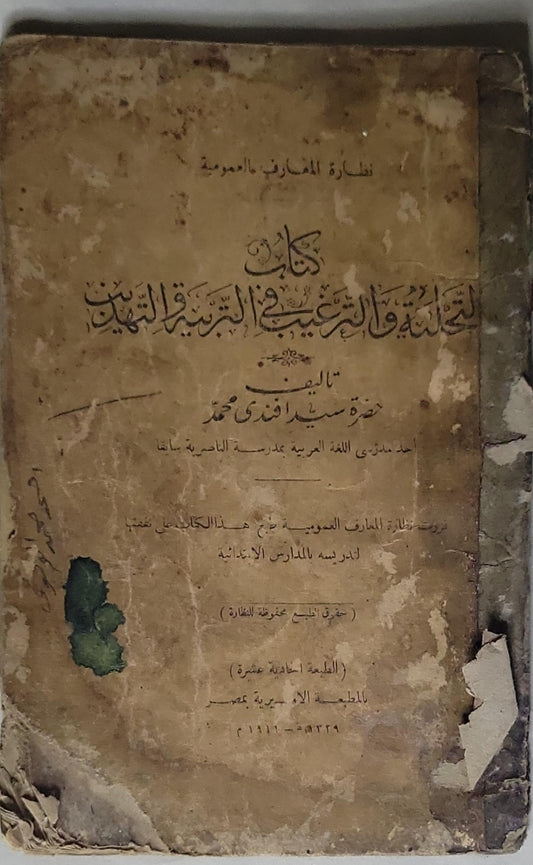 نظارة المعارف العمومية
كتاب
التحلية والترغيب في التربية والتهذيب
تاليف
حضرة سيد افندى محمد
احد مدرسى اللغة العربية بمدرسة الناصرية سابقا
نظارة المعارف العمومية طبع هذا الكتاب على نفقتها
لتدريسه بالمدارس الابتدائية
( حقوق الطبع محفوظة للنظارة )
( الطبعة الحادية عشرة )
بالمطبعة الاميرية بمصر
١٣٢٩ه – ١٩١١ م